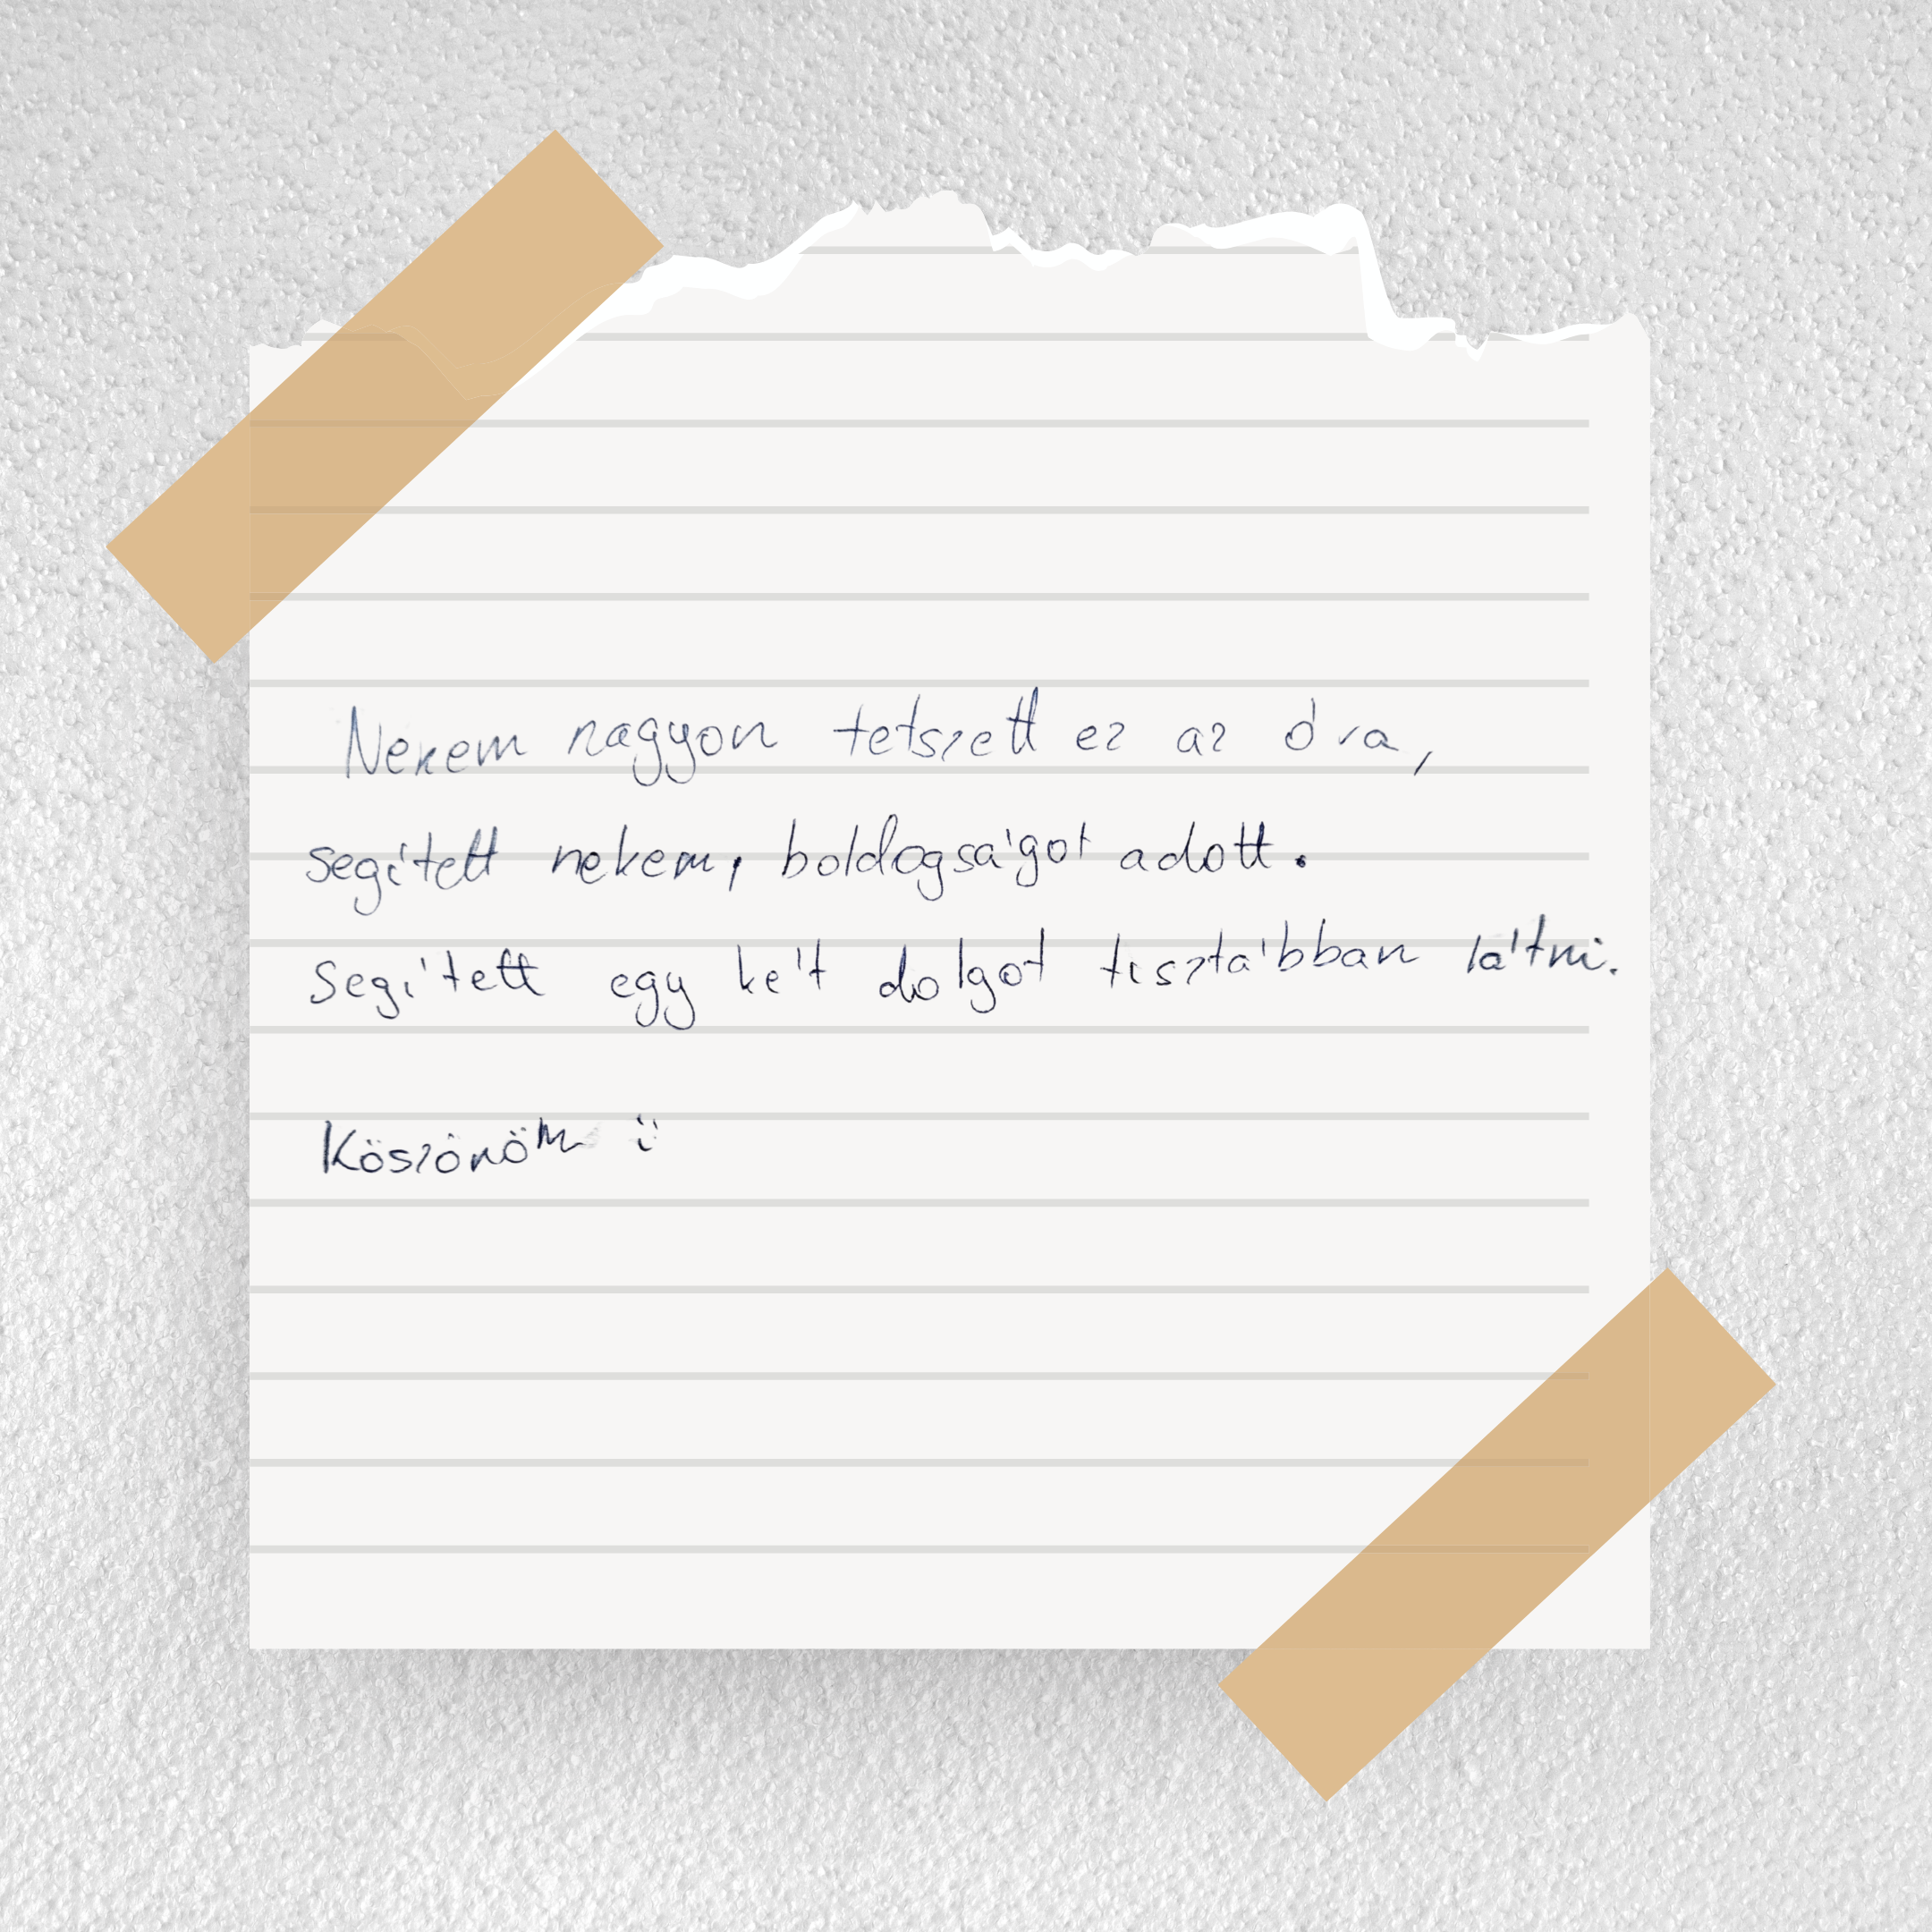 Nekem nagyon tetszett ez az óra,
segített nekem, boldogságot adott.
Segített egy két dolgot tisztábban látni.
Köszönöm :)